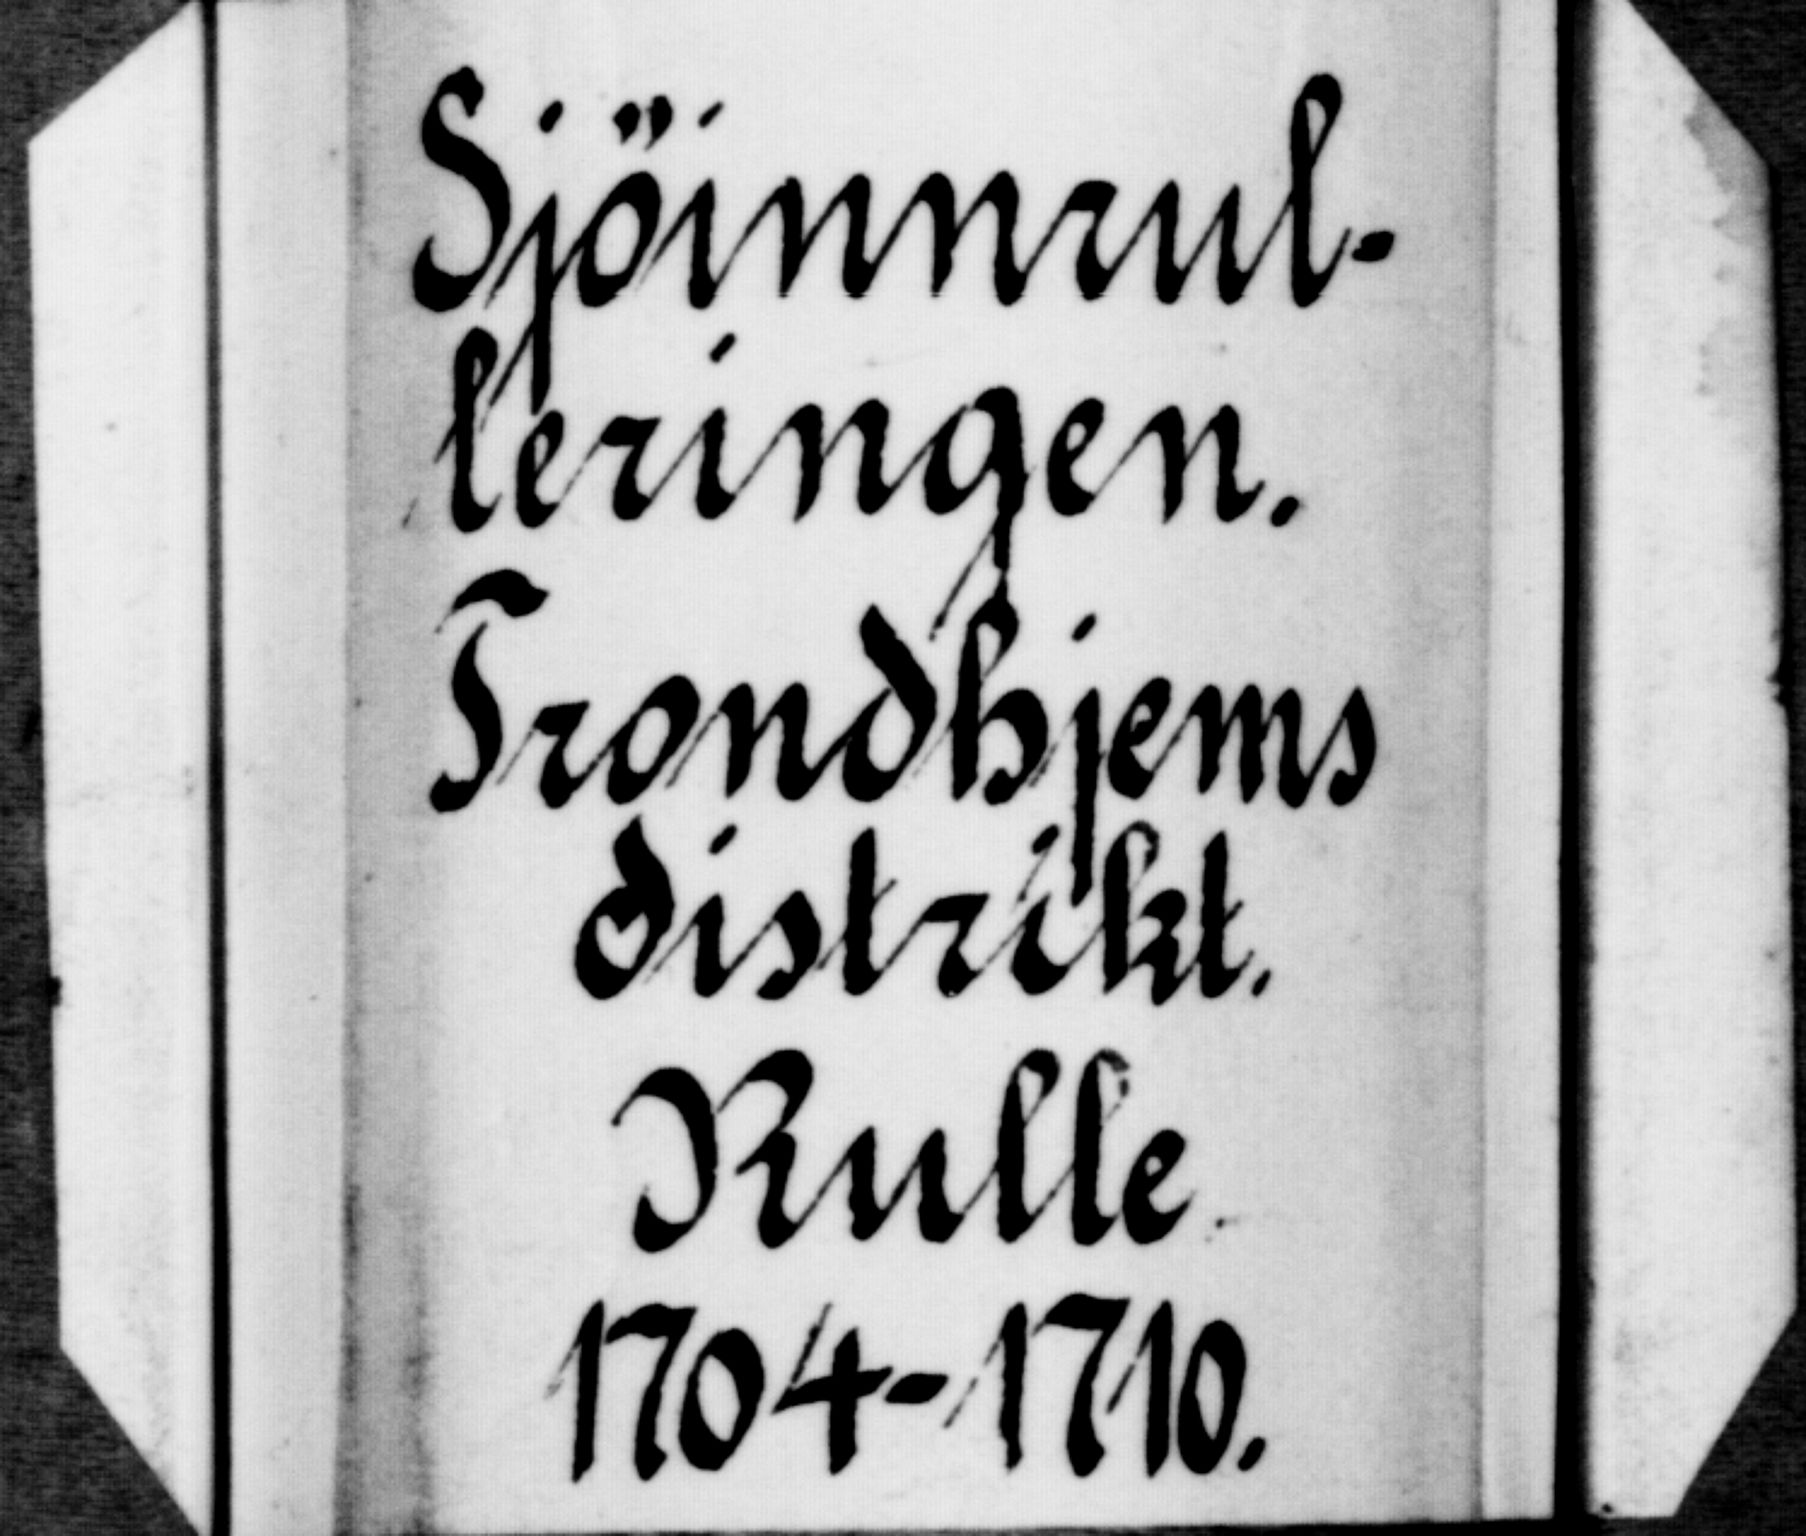 Sjöinnrul-
leringen.
Trondhjems
distrikt.
Rulle
1704-1710.